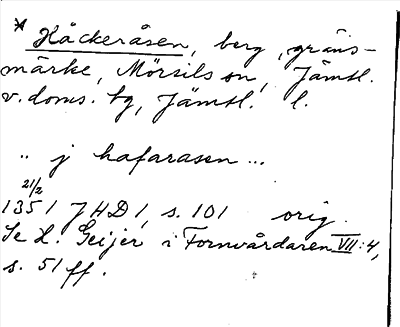 * Håckeråsen, berg, gräns-
märke, Mörsils sn, Jämtl.
v. doms. tg, Jämtl. l.
.. j hafarasen ...
21/2
1351 JHD 1, s. 101 orig.
Se H. Geijer i Fornvårdaren VII:4,
s. 51 ff.